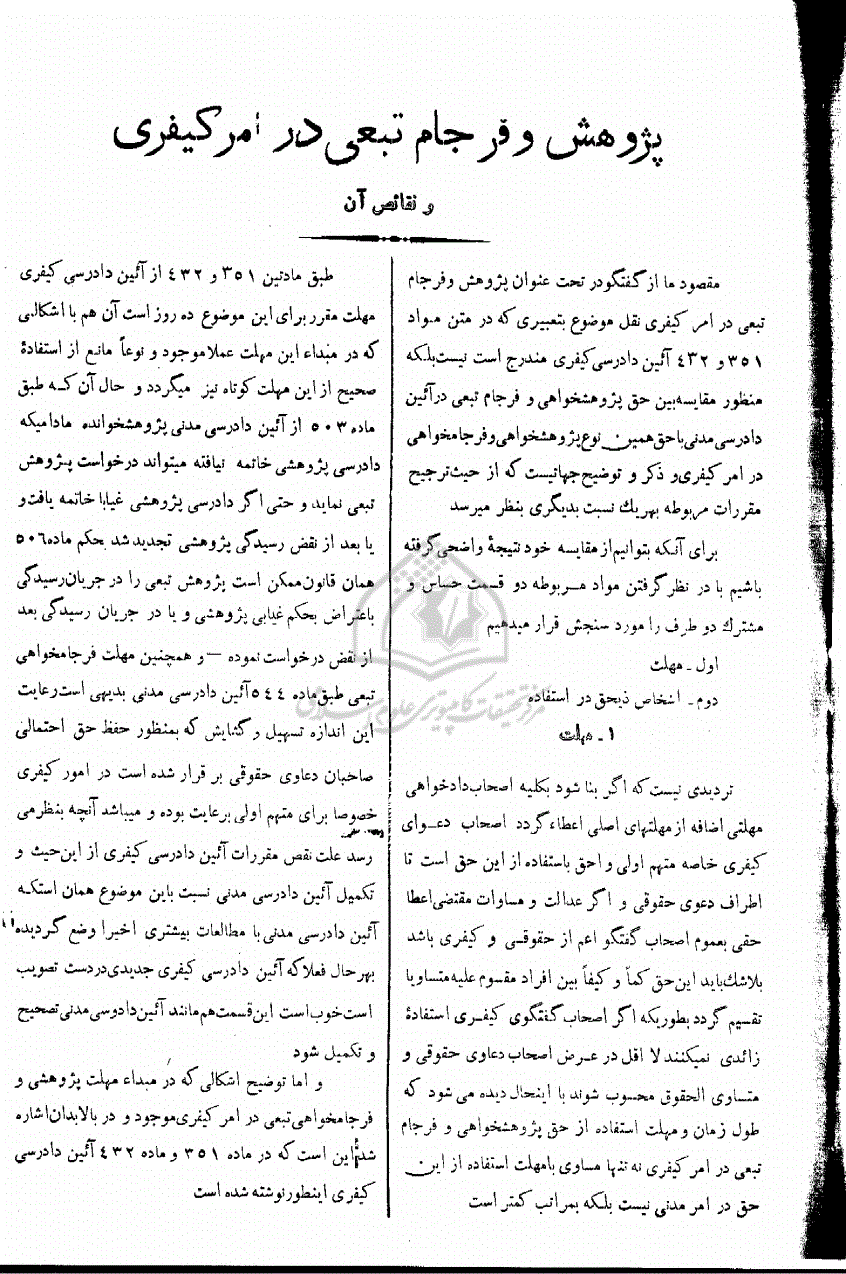 پژوهش و فرجام تبعی در امر کیفری
و نقائص آن
مقصود ما از گفتگو در تحت عنوان پژوهش وفرجام
تبعی در امر کیفری نقل موضوع بتعبیری که در متن مواد
۳۵۱ و ۴۳۲ آئین دادرسی کیفری مندرج است نیست بلکه
منظور مقایسه بین حق پژوهشخواهی و فرجام تبعی در آئین
دادرسی مدنی باحق همین نوع پژوهشخواهی و فرجامخواهی
در امر کیفری و ذکر و توضیح جهاتیست که از حیث ترجیح
مقررات مربوطه بهریك نسبت بدیگری بنظر میرسد
برای آنکه بتوانیم از مقایسه خود نتیجهٔ واضحی گرفته
باشیم با در نظر گرفتن مواد مربوطه دو قسمت حساس و
مشترك دو طرف را مورد سنجش قرار میدهیم
اول ـ مهلت
دوم ـ اشخاص ذیحق در استفاده
۱ ـ مهلت
تردیدی نیست که اگر بنا شود بکلیه اصحاب دادخواهی
مهلتی اضافه از مهلتهای اصلی اعطاء گردد اصحاب دعوای
کیفری خاصه متهم اولی و احق باستفاده از این حق است تا
اطراف دعوی حقوقی و اگر عدالت و مساوات مقتضی اعطا
حقی بعموم اصحاب گفتگو اعم از حقوقی و کیفری باشد
بلاشك باید این حق کماً و کیفاً بین افراد مقسوم علیه متساویا
تقسیم گردد بطوریکه اگر اصحاب گفتگوی کیفری استفادهٔ
زائدی نمیکنند لا اقل در عرض اصحاب دعاوی حقوقی و
متساوی الحقوق محسوب شوند با اینحال دیده می شود که
طول زمان و مهلت استفاده از حق پژوهشخواهی و فرجام
تبعی در امر کیفری نه تنها مساوی بامهلت استفاده از این
حق در امر مدنی نیست بلکه بمراتب کمتر است
طبق مادتین ۳۵۱ و ۴۳۲ از آئین دادرسی کیفری
مهلت مقرر برای این موضوع ده روز است آن هم با اشکالی
که در مبداء این مهلت عملا موجود و نوعاً مانع از استفادهٔ
صحیح از این مهلت کوتاه نیز میگردد و حال آن که طبق
ماده ۵۰۳ از آئین دادرسی مدنی پژوهشخوانده مادامیکه
دادرسی پژوهشی خاتمه نیافته میتواند درخواست پژوهش
تبعی نماید و حتی اگر دادرسی پژوهشی غیابا خاتمه یافت و
یا بعد از نقض رسیدگی پژوهشی تجدید شد بحکم ماده ۵۰۶
همان قانون ممکن است پژوهش تبعی را در جریان رسیدگی
باعتراض بحکم غیابی پژوهشی و یا در جریان رسیدگی بعد
از نقض درخواست نموده — و همچنین مهلت فرجامخواهی
تبعی طبق ماده ۵۴۴ آئین دادرسی مدنی بدیهی است رعایت
این اندازه تسهیل و گشایش که بمنظور حفظ حق احتمالی
صاحبان دعاوی حقوقی بر قرار شده است در امور کیفری
خصوصا برای متهم اولی برعایت بوده و میباشد آنچه بنظر می
رسد علت نقص مقررات آئین دادرسی کیفری از این حیث و
تکمیل آئین دادرسی مدنی نسبت باین موضوع همان استکه
آئین دادرسی مدنی با مطالعات بیشتری اخیرا وضع گردیده
بهر حال فعلا که آئین دادرسی کیفری جدیدی در دست تصویب
است خوب است این قسمت هم مانند آئین دادرسی مدنی تصحیح
و تکمیل شود
و اما توضیح اشکالی که در مبداء مهلت پژوهشی و
فرجامخواهی تبعی در امر کیفری موجود و در بالا بدان اشاره
شد این است که در ماده ۳۵۱ و ماده ۴۳۲ آئین دادرسی
کیفری اینطور نوشته شده است